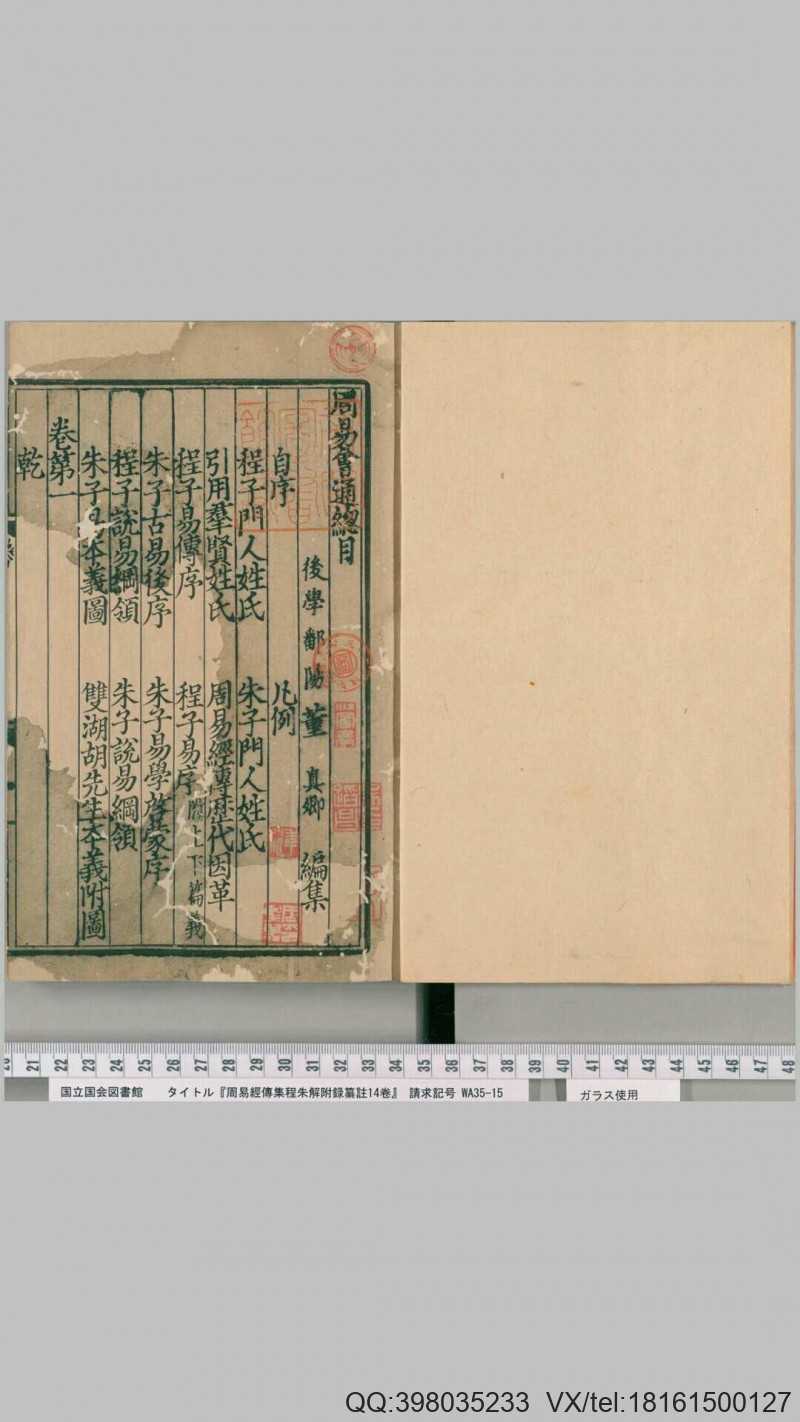 周易會通總目
後學鄱陽董 真卿 編集
自序 凡例
程子門人姓氏 朱子門人姓氏
引用羣賢姓氏 周易經傳歷代因革
程子易傳序 程子易序 上下篇義
朱子古易後序 朱子易學啓蒙序
程子說易綱領 朱子說易綱領
朱子易本義圖 雙湖胡先生本義附圖
卷第一
乾
21 22 23 24 25 26 27 28 29 30 31 32 33 34 35 36 37 38 39 40 41 42 43 44 45 46 47 48
国立国会図書館 タイトル『周易經傳集程朱解附録纂註14巻』 請求記号 WA35-15
ガラス使用
QQ:398035233 VX/tel:18161500127